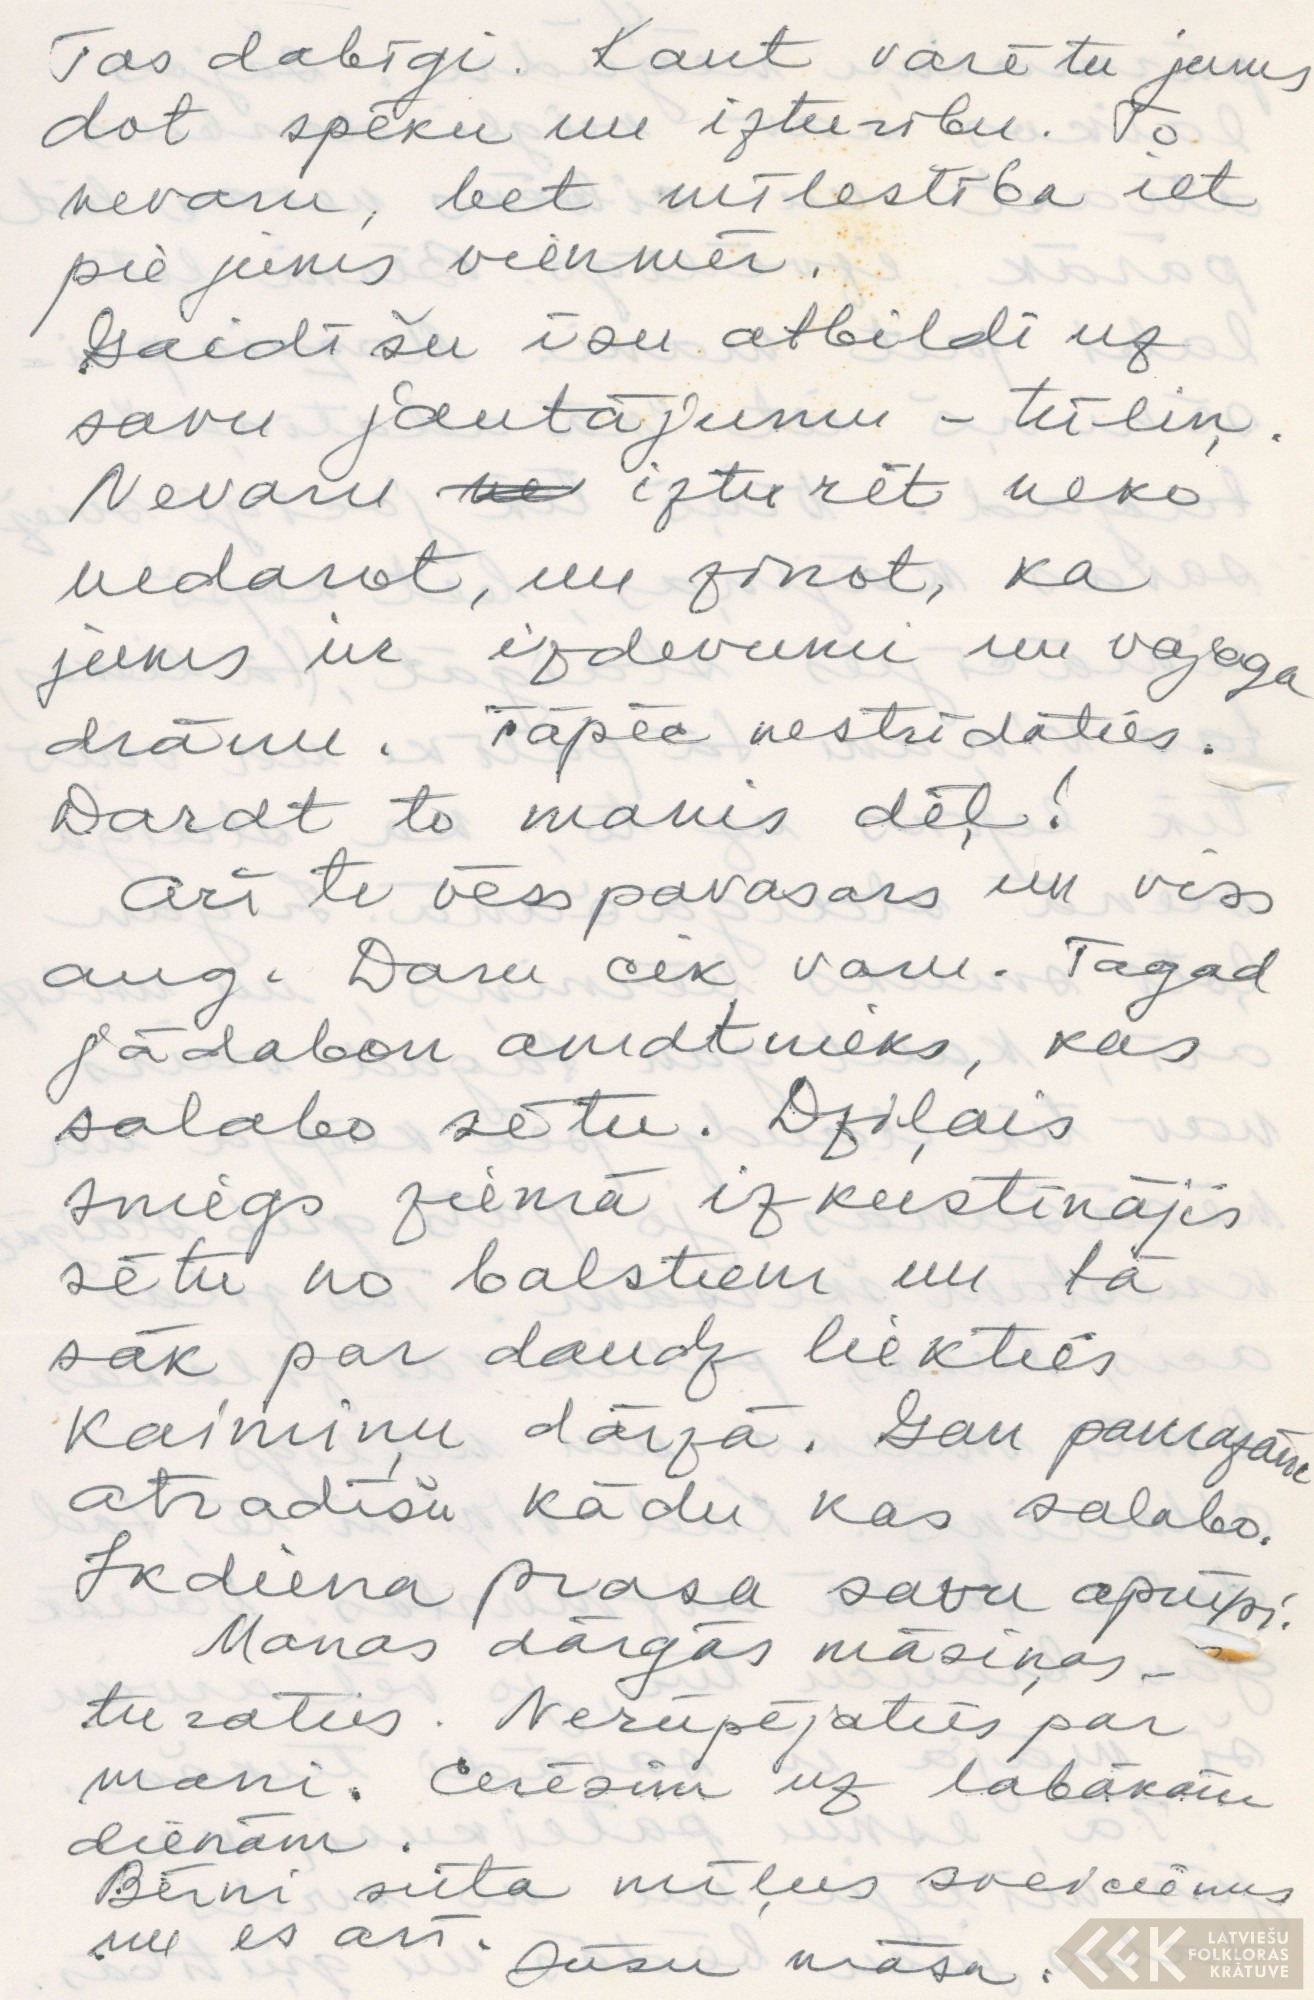 Tas dabīgi. Kaut varētu jums
dot spēku un izturību. To
nevaru, bet mīlestība iet
pie jums vienmēr.
Gaidīšu īsu atbildi uz
savu jautājumu – tūliņ.
Nevaru ne izturēt neko
nedarot, un zinot, ka
jums ir izdevumi un vajaga
drānu. Tāpēc nestrīdaties.
Darat to manis dēļ!
Arī te vēss pavasars un viss
aug. Daru cik varu. Tagad
jādabon amatnieks, kas
salabo sētu. Dziļais
sniegs ziemā izkustinājis
sētu no balstiem un tā
sāk par daudz liekties
kaimiņu dārzā. Gan pamazām
atradīšu kādu kas salabo.
Ikdiena prasa savu aprūpi.
Manas dārgās māsiņas –
turaties. Nerūpējaties par
mani. Cerēsim uz labākām
dienām.
Bērni sūta mīļus sveicienus
un es arī.
Jūsu māsa.
LATVIEŠU
FOLKLORAS
KRĀTUVE